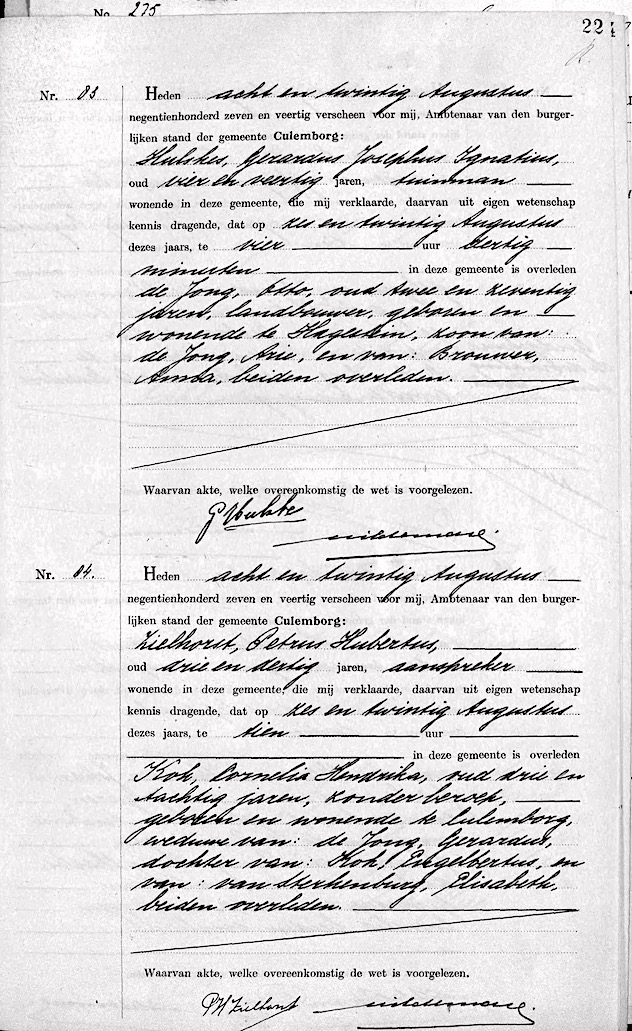 No. 275
224
Nr. 83 Heden acht en twintig Augustus
negentienhonderd zeven en veertig verscheen voor mij, Ambtenaar van den burger-
lijken stand der gemeente Culemborg:
Hulskes, Gerardus Josephus Ignatius,
oud vier en veertig jaren, tuinman
wonende in deze gemeente, die mij verklaarde, daarvan uit eigen wetenschap
kennis dragende, dat op zes en twintig Augustus
dezes jaars, te vier uur dertig
minuten in deze gemeente is overleden
de Jong, Otto, oud twee en zeventig
jaren, landbouwer, geboren en
wonende te Hagestein, zoon van:
de Jong, Arie, en van: Brouwer,
Anna, beiden overleden.
Waarvan akte, welke overeenkomstig de wet is voorgelezen.
Nr. 84. Heden acht en twintig Augustus
negentienhonderd zeven en veertig verscheen voor mij, Ambtenaar van den burger-
lijken stand der gemeente Culemborg:
Zielhorst, Petrus Hubertus,
oud drie en dertig jaren, aanspreker
wonende in deze gemeente, die mij verklaarde, daarvan uit eigen wetenschap
kennis dragende, dat op zes en twintig Augustus
dezes jaars, te tien uur
in deze gemeente is overleden
Kok, Cornelia Hendrika, oud drie en
tachtig jaren, zonder beroep,
geboren en wonende te Culemborg,
weduwe van: de Jong, Gerardus,
dochter van: Kok, Engelbertus, en
van: van Sterkenburg, Elisabeth,
beiden overleden.
Waarvan akte, welke overeenkomstig de wet is voorgelezen.
PH Zielhorst